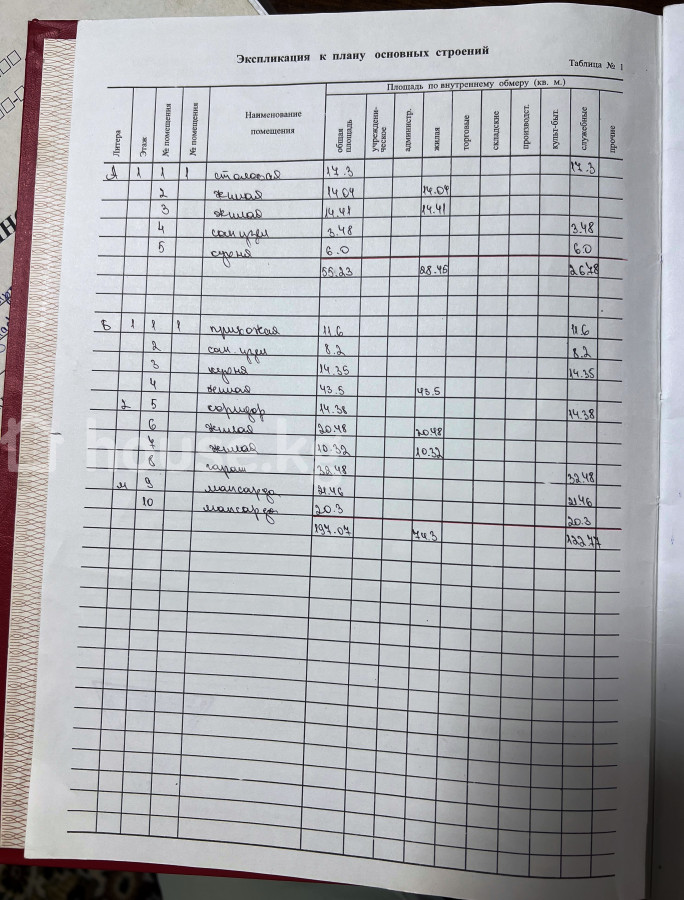 Экспликация к плану основных строений
Таблица № 1
Литера
Этаж
№ помещения
№ помещения
Наименование помещения
Площадь по внутреннему обмеру (кв. м.)
общая площадь
учрежденическое
администр.
жилая
торговые
складские
производст.
культ-быт.
служебные
прочие
А 1 1 1 столовая 17.3 17.3
2 жилая 14.04 14.04
3 жилая 14.41 14.41
4 сан узел 3.48 3.48
5 кухня 6.0 6.0
55.23 28.45 26.78
Б 1 1 1 прихожая 11.6 11.6
2 сан. узел 8.2 8.2
3 кухня 14.35 14.35
4 жилая 43.5 43.5
2 5 коридор 14.38 14.38
6 жилая 20.48 20.48
7 жилая 10.32 10.32
8 гараж 32.48 32.48
м 9 мансарда 21.46 21.46
10 мансарда 20.3 20.3
197.07 74.3 122.77
house.kg